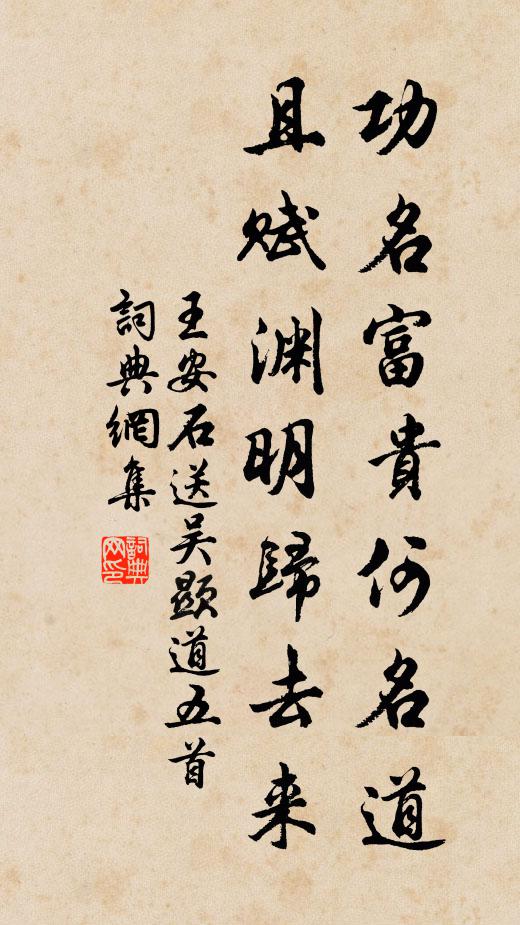 功名富貴何名道
且赋渊明歸去来
王安石送吴顯道五首
詞典網集
詞典网印